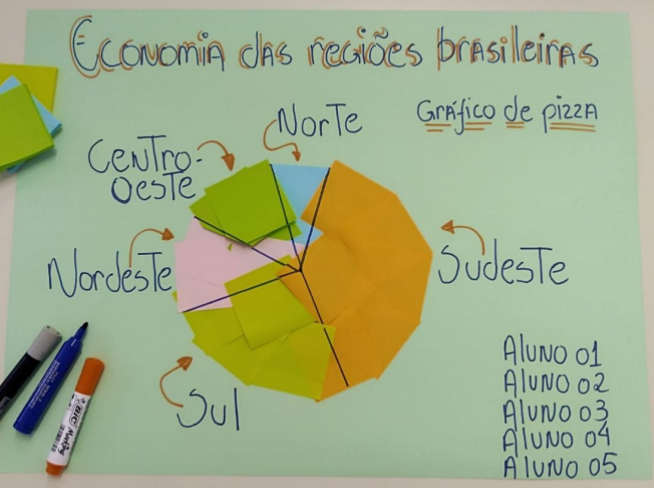 Economia das regiões brasileiras
Gráfico de pizza
Norte
Centro-
Oeste
Nordeste
Sudeste
Sul
Aluno 01
Aluno 02
Aluno 03
Aluno 04
Aluno 05
BIC